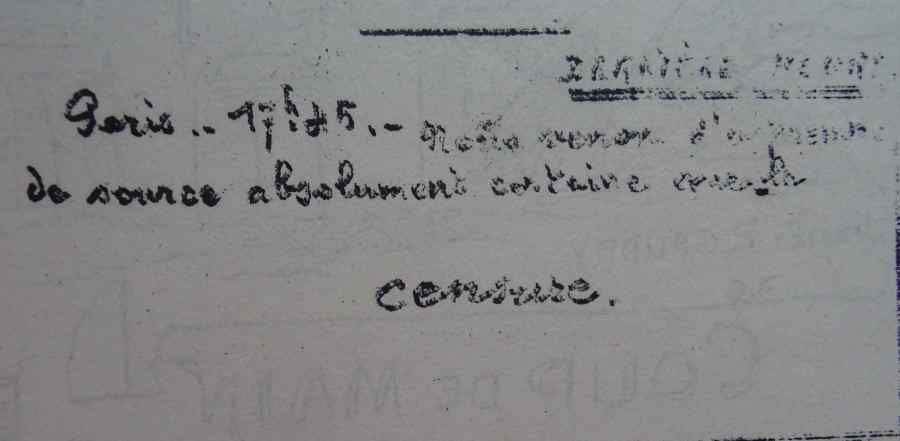 DERNIÈRE HEURE.
Paris.. 17h.45.- Nous venon d'apprendre
de source absolument certaine que
censure.
COUP DE MAIN